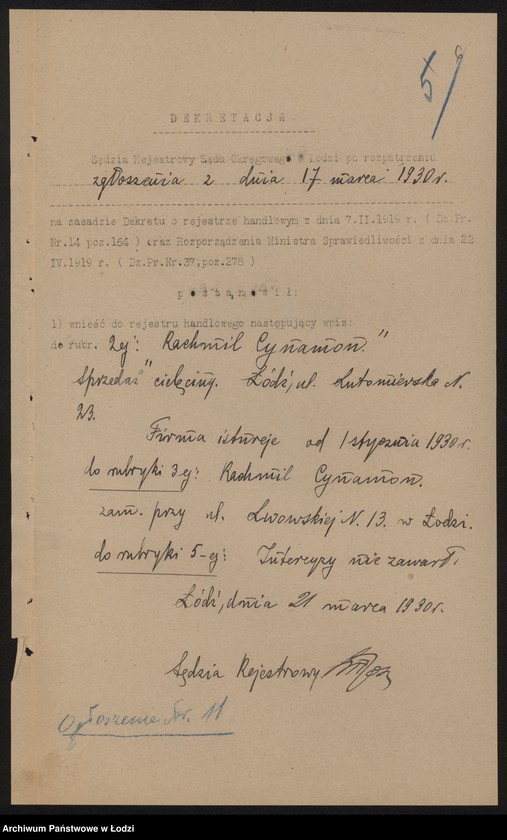 5
D E K R E T A C J A.
Sędzia Rejestrowy Sądu Okręgowego w Łodzi po rozpatrzeniu
zgłoszenia z dnia 17 marca 1930 r.
na zasadzie Dekretu o rejestrze handlowym z dnia 7.II.1919 r. ( Dz.Pr.
Nr.14 poz.164 ) oraz Rozporządzenia Ministra Sprawiedliwości z dnia 22
IV.1919 r. ( Dz.Pr.Nr.37,poz.278 )
p o s t a n o w i ł:
1) wnieść do rejestru handlowego następujący wpis:
do rubr. 2ej: Rachmil Cynamon."
Sprzedaż" cielęciny. Łódź, ul. Lutomierska N.
23.
Firma istnieje od 1 stycznia 1930 r.
do rubryki 3 ej: Rachmil Cynamon.
zam. przy ul. Lwowskiej N. 13. w Łodzi.
do rubryki 5-ej: Intercyzy nie zawarł.
Łódź, dnia 21 marca 1930 r.
Sędzia Rejestrowy
Ogłoszenie Nr. 11
Archiwum Państwowe w Łodzi